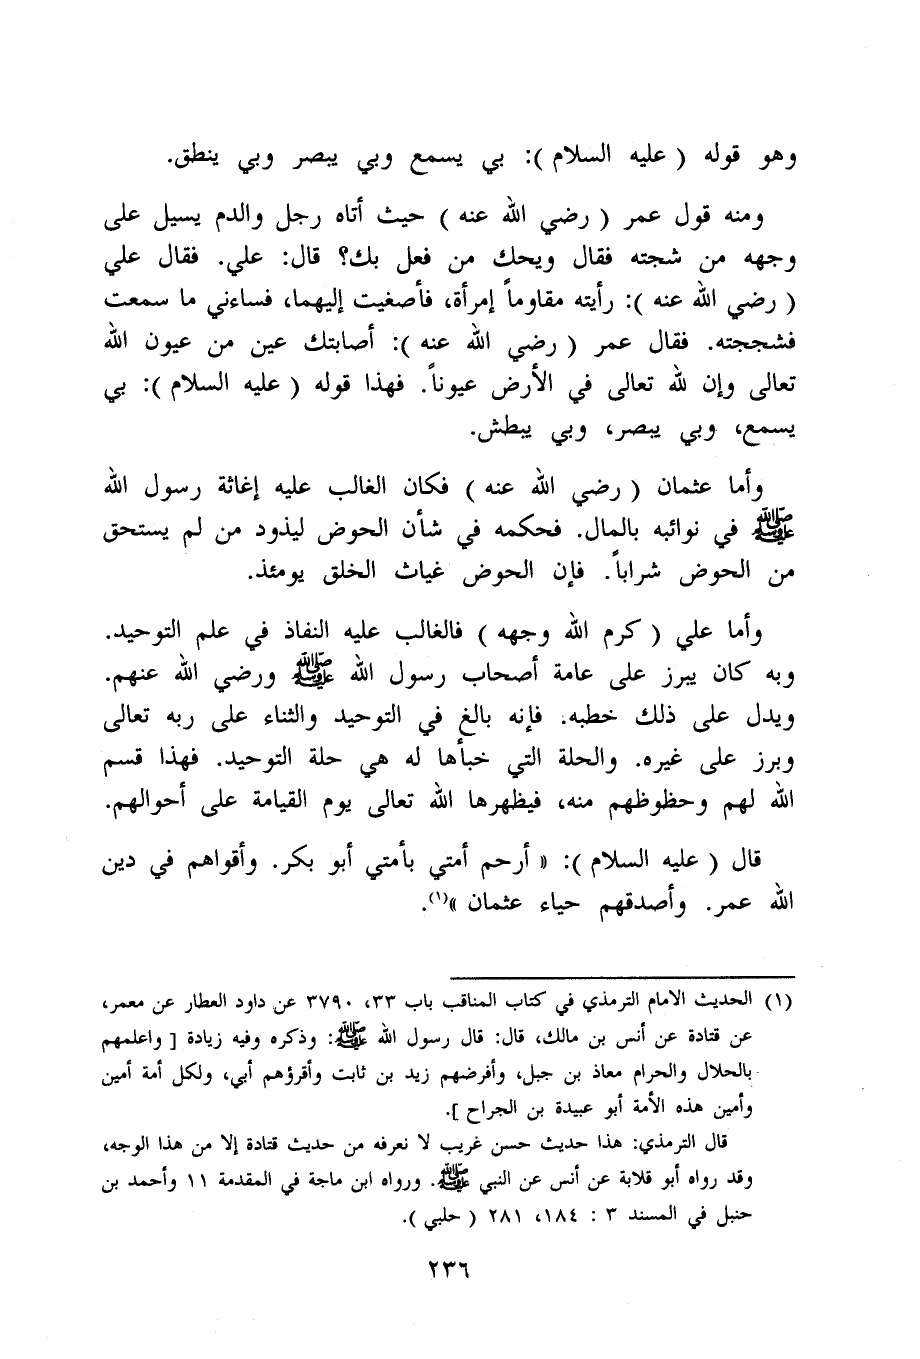 وهو قوله ( عليه السلام ): بي يسمع وبي يبصر وبي ينطق.
ومنه قول عمر ( رضي الله عنه ) حيث أتاه رجل والدم يسيل على
وجهه من شجته فقال ويحك من فعل بك؟ قال: علي. فقال علي
( رضي الله عنه ): رأيته مقاوماً إمرأة، فأصغيت إليهما، فساءني ما سمعت
فشججته. فقال عمر ( رضي الله عنه ): أصابتك عين من عيون الله
تعالى وإن لله تعالى في الأرض عيوناً. فهذا قوله ( عليه السلام ): بي
يسمع، وبي يبصر، وبي يبطش.
وأما عثمان ( رضي الله عنه ) فكان الغالب عليه إغاثة رسول الله
ﷺ في نوائبه بالمال. فحكمه في شأن الحوض ليذود من لم يستحق
من الحوض شراباً. فإن الحوض غياث الخلق يومئذ.
وأما علي ( كرم الله وجهه ) فالغالب عليه النفاذ في علم التوحيد.
وبه كان يبرز على عامة أصحاب رسول الله ﷺ ورضي الله عنهم.
ويدل على ذلك خطبه. فإنه بالغ في التوحيد والثناء على ربه تعالى
وبرز على غيره. والحلة التي خبأها له هي حلة التوحيد. فهذا قسم
الله لهم وحظوظهم منه، فيظهرها الله تعالى يوم القيامة على أحوالهم.
قال ( عليه السلام ): « أرحم أمتي بأمتي أبو بكر. وأقواهم في دين
الله عمر. وأصدقهم حياء عثمان »(١).
(١) الحديث الامام الترمذي في كتاب المناقب باب ٣٣، ٣٧٩٠ عن داود العطار عن معمر،
عن قتادة عن أنس بن مالك، قال: قال رسول الله ﷺ: وذكره وفيه زيادة [ واعلمهم
بالحلال والحرام معاذ بن جبل، وأفرضهم زيد بن ثابت وأقرؤهم أبي، ولكل أمة أمين
وأمين هذه الأمة أبو عبيدة بن الجراح ].
قال الترمذي: هذا حديث حسن غريب لا نعرفه من حديث قتادة إلا من هذا الوجه،
وقد رواه أبو قلابة عن أنس عن النبي ﷺ. ورواه ابن ماجة في المقدمة ١١ وأحمد بن
حنبل في المسند ٣ : ١٨٤، ٢٨١ ( حلبي ).
٢٣٦